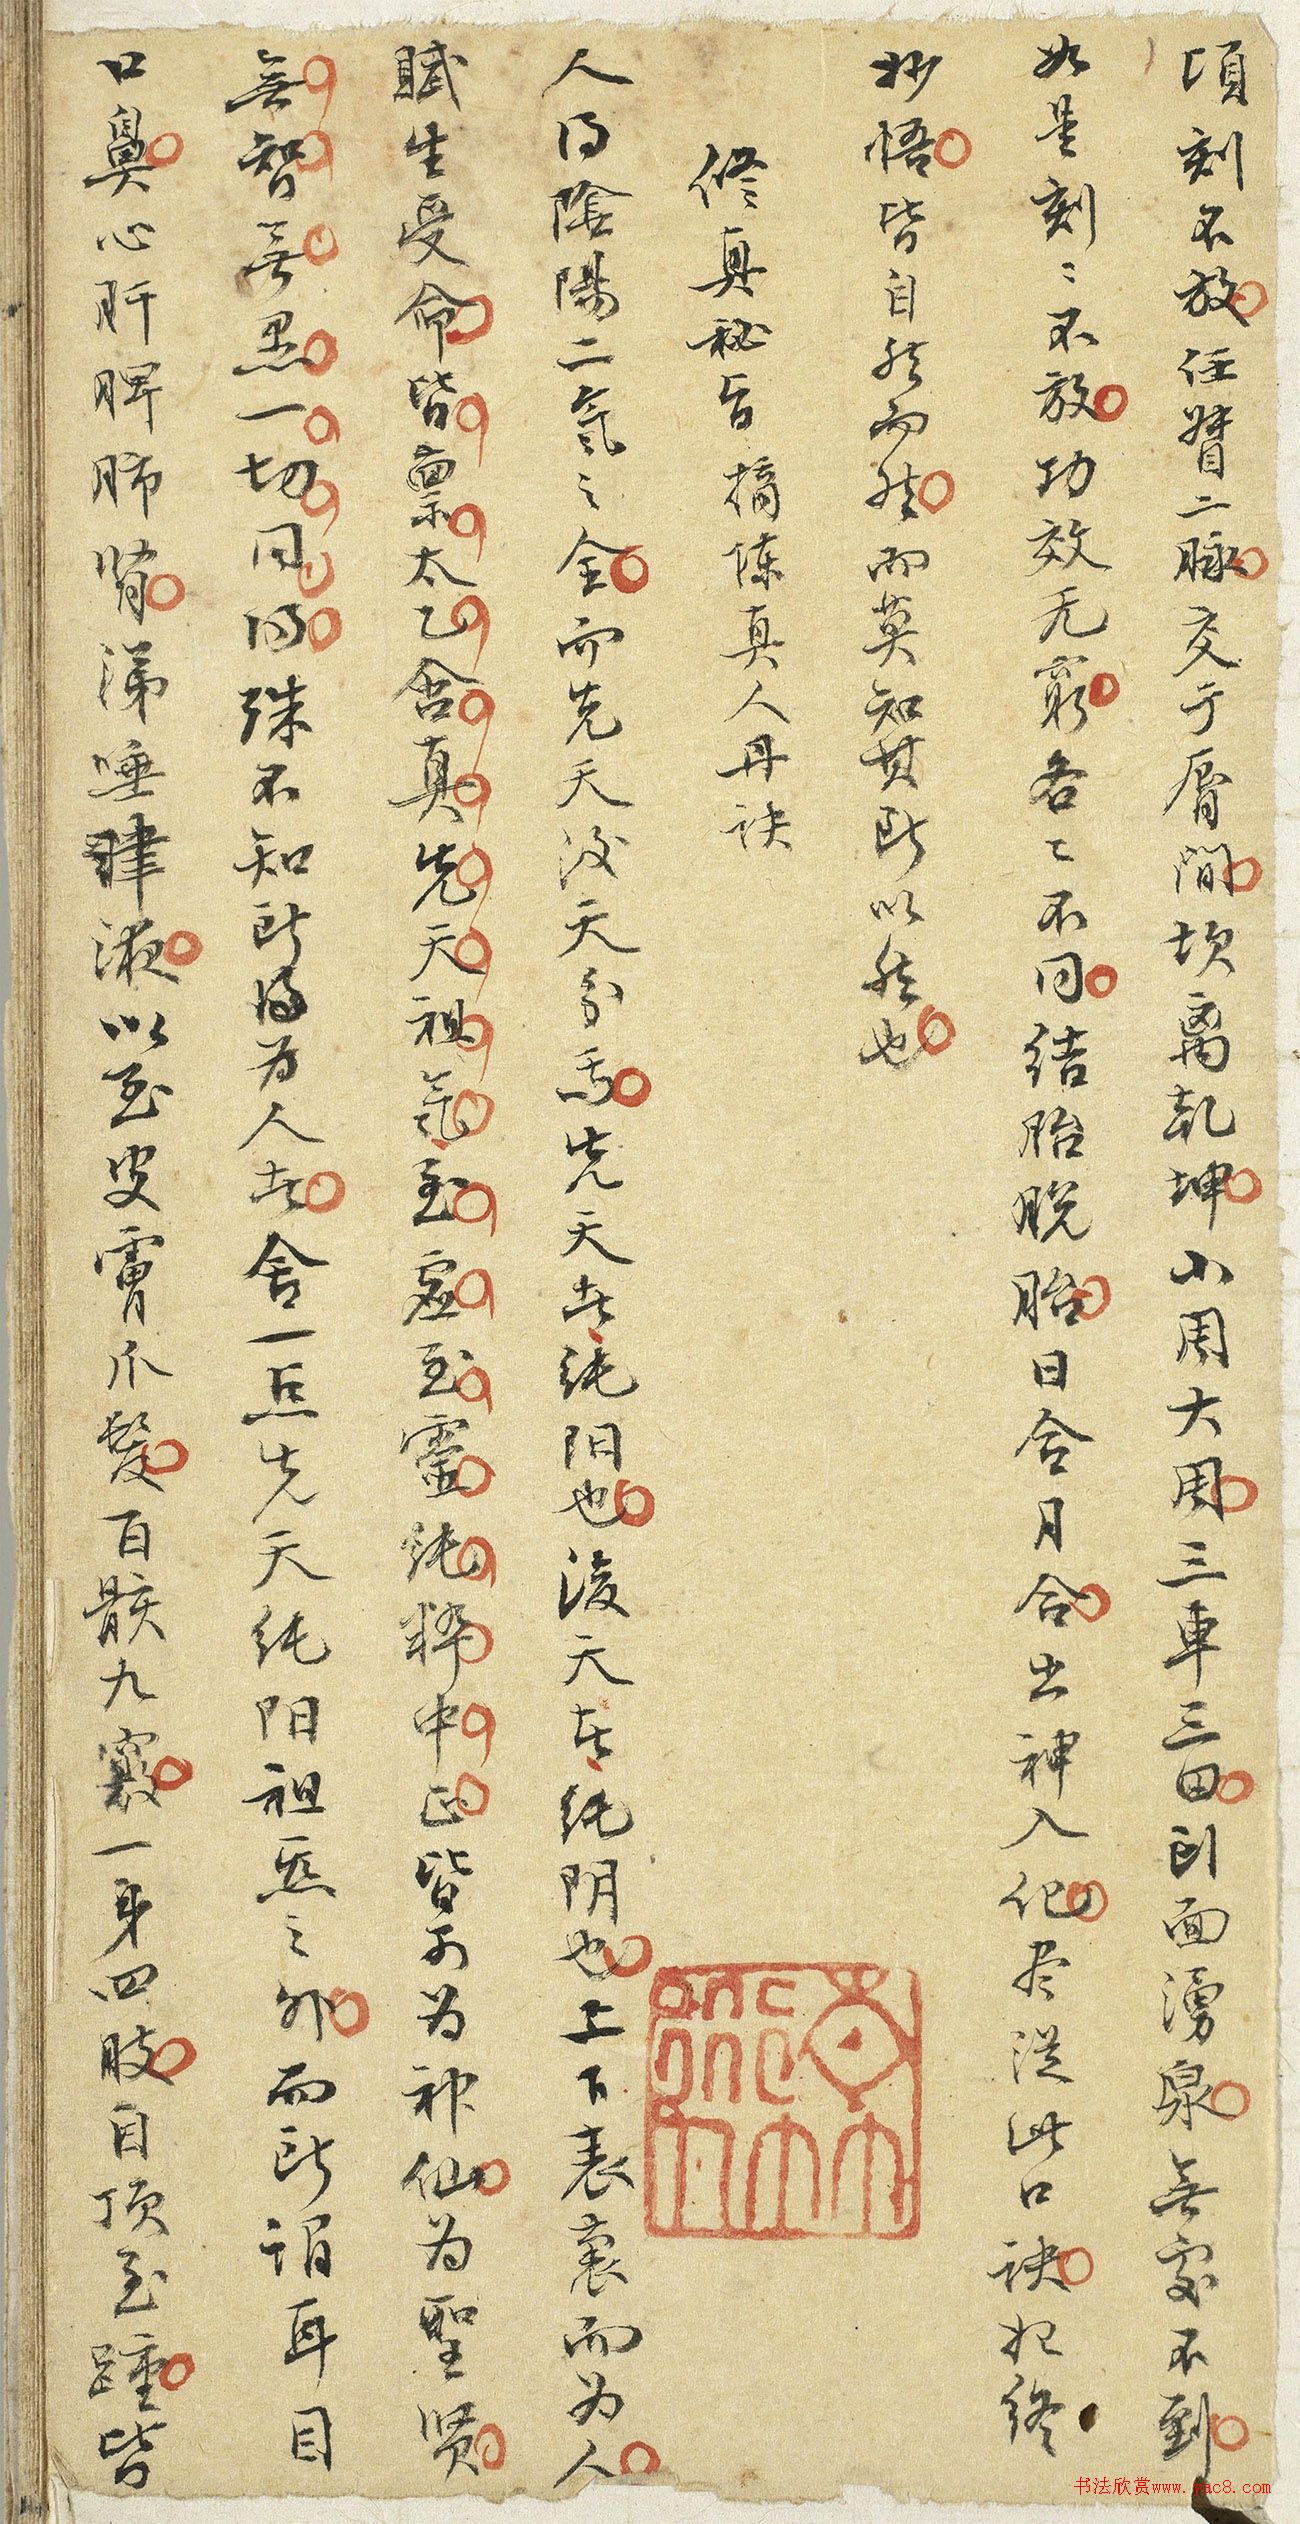 頃刻不放任督二脉交于脣間坎离乾坤小周大周三車三田到面湧泉無處不到
如是刻〻不放功效无窮各〻不同结胎脱胎日合月合出神入化尽從此口诀始终
妙悟皆自然而然而莫知其所以然也
修真秘旨摘陈真人丹诀
人得陰陽二氣之全而先天後天分焉先天者纯阳也後天者纯阴也上下表裏而为人
賦生受命皆禀太乙含真先天祖氣至虚至靈纯粹中正皆可为神仙为聖贤
無智無愚一切同得殊不知所得为人者舍一点先天纯阳祖炁之外而所谓耳目
口鼻心肝脾肺腎涕唾津液以至皮膚爪髮百骸九竅一身四肢自顶至踵皆
书法欣赏www.yac8.com